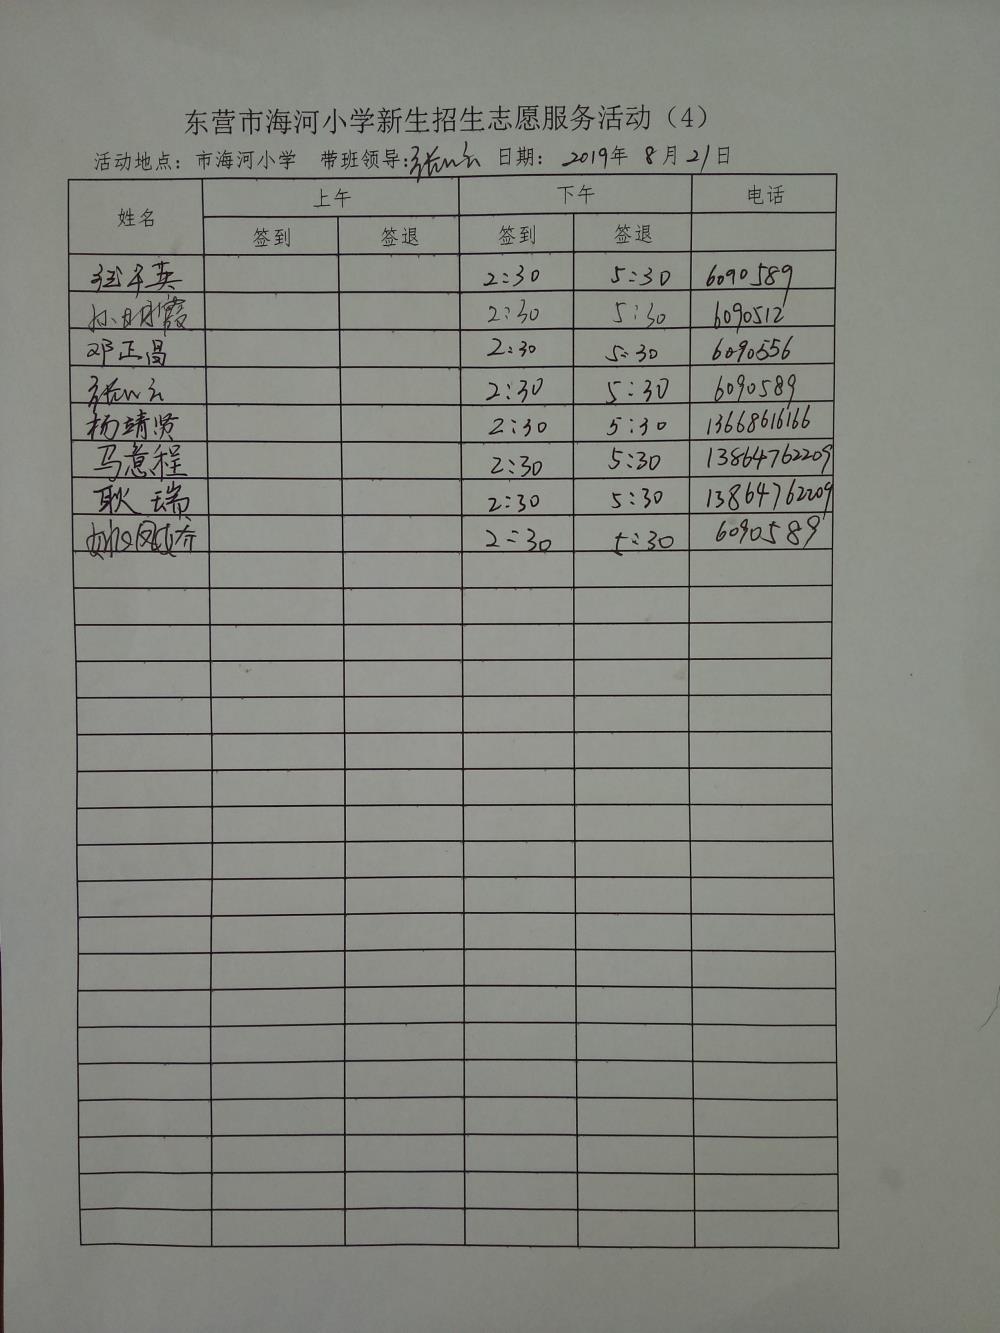 东营市海河小学新生招生志愿服务活动（4）
活动地点：市海河小学 带班领导： 日期：2019年8月21日
姓名 上午 下午 电话
签到 签退 签到 签退
英 2:30 5:30 6090589
孙明霞 2:30 5:30 6090512
邓正昌 2:30 5:30 6090556
2:30 5:30 6090589
杨靖贤 2:30 5:30 13668616166
马意程 2:30 5:30 13864762209
耿瑞 2:30 5:30 13864762209
2:30 5:30 6090589